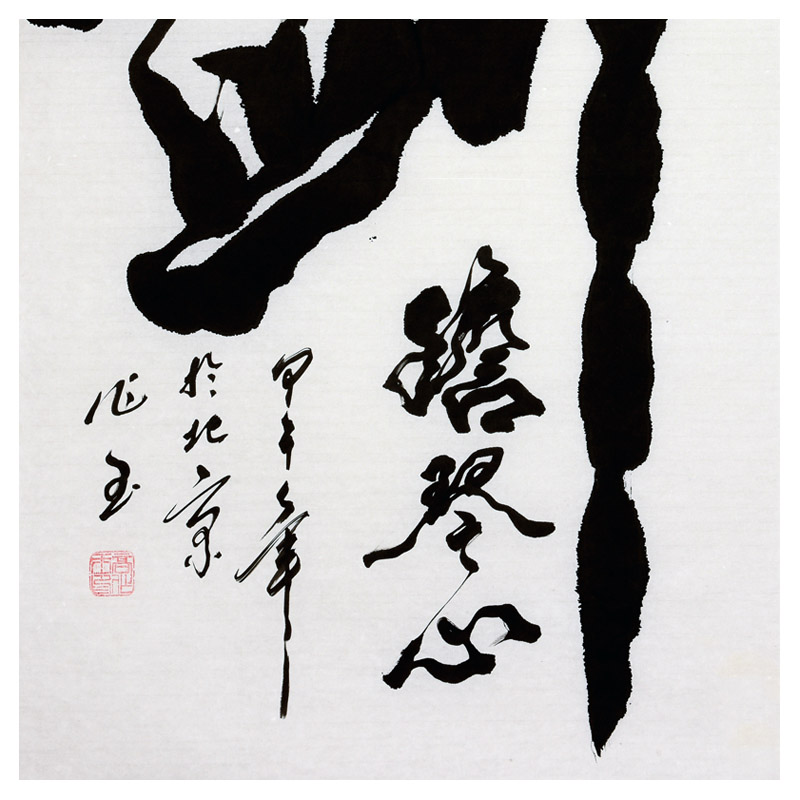 膽琴心
甲午年
於北京
作玉